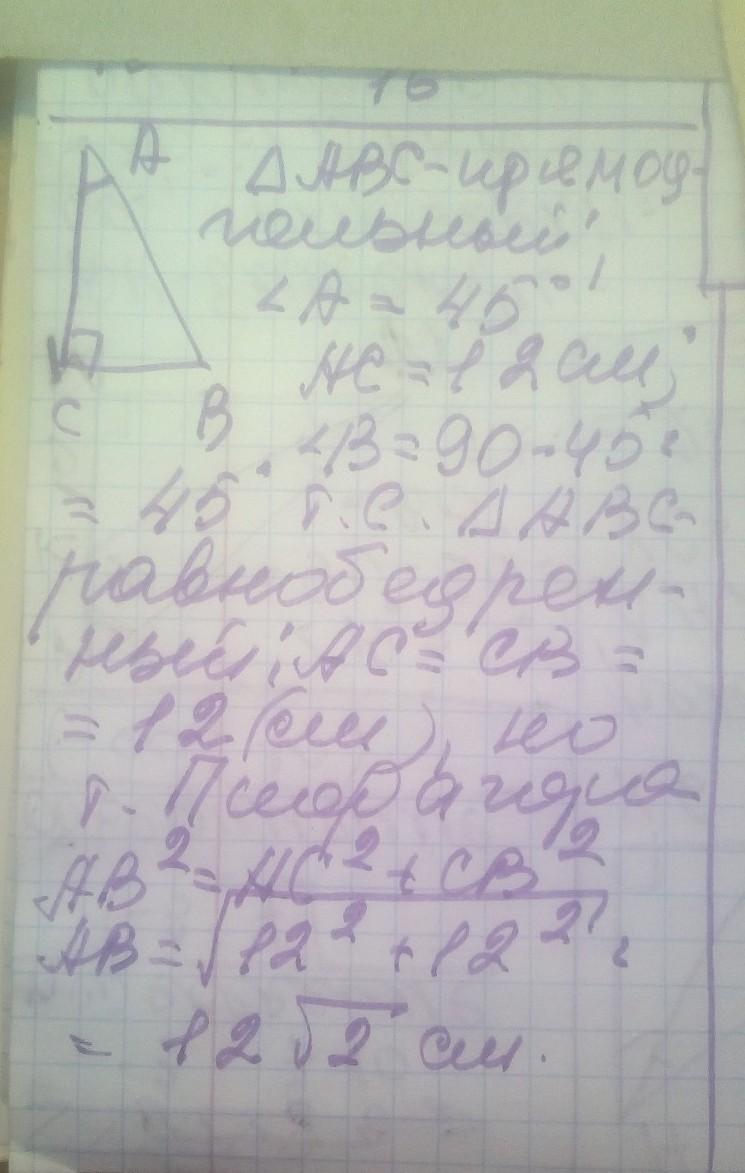 16
A
△ABC - прямоу-
гольный,
∠A = 45°;
AC = 12 см;
C B ∠B = 90 - 45 =
= 45° т.с. △ABC -
равнобедрен-
ный; AC = CB =
= 12 (см), по
т. Пифагора
AB² = AC² + CB²
AB = √12² + 12² =
= 12√2 см.